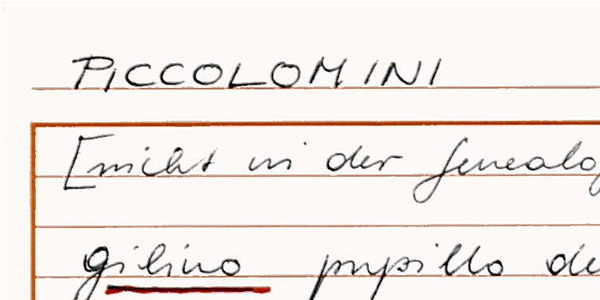 PICCOLOMINI
[nicht in der Genealo
gilino pupillo de